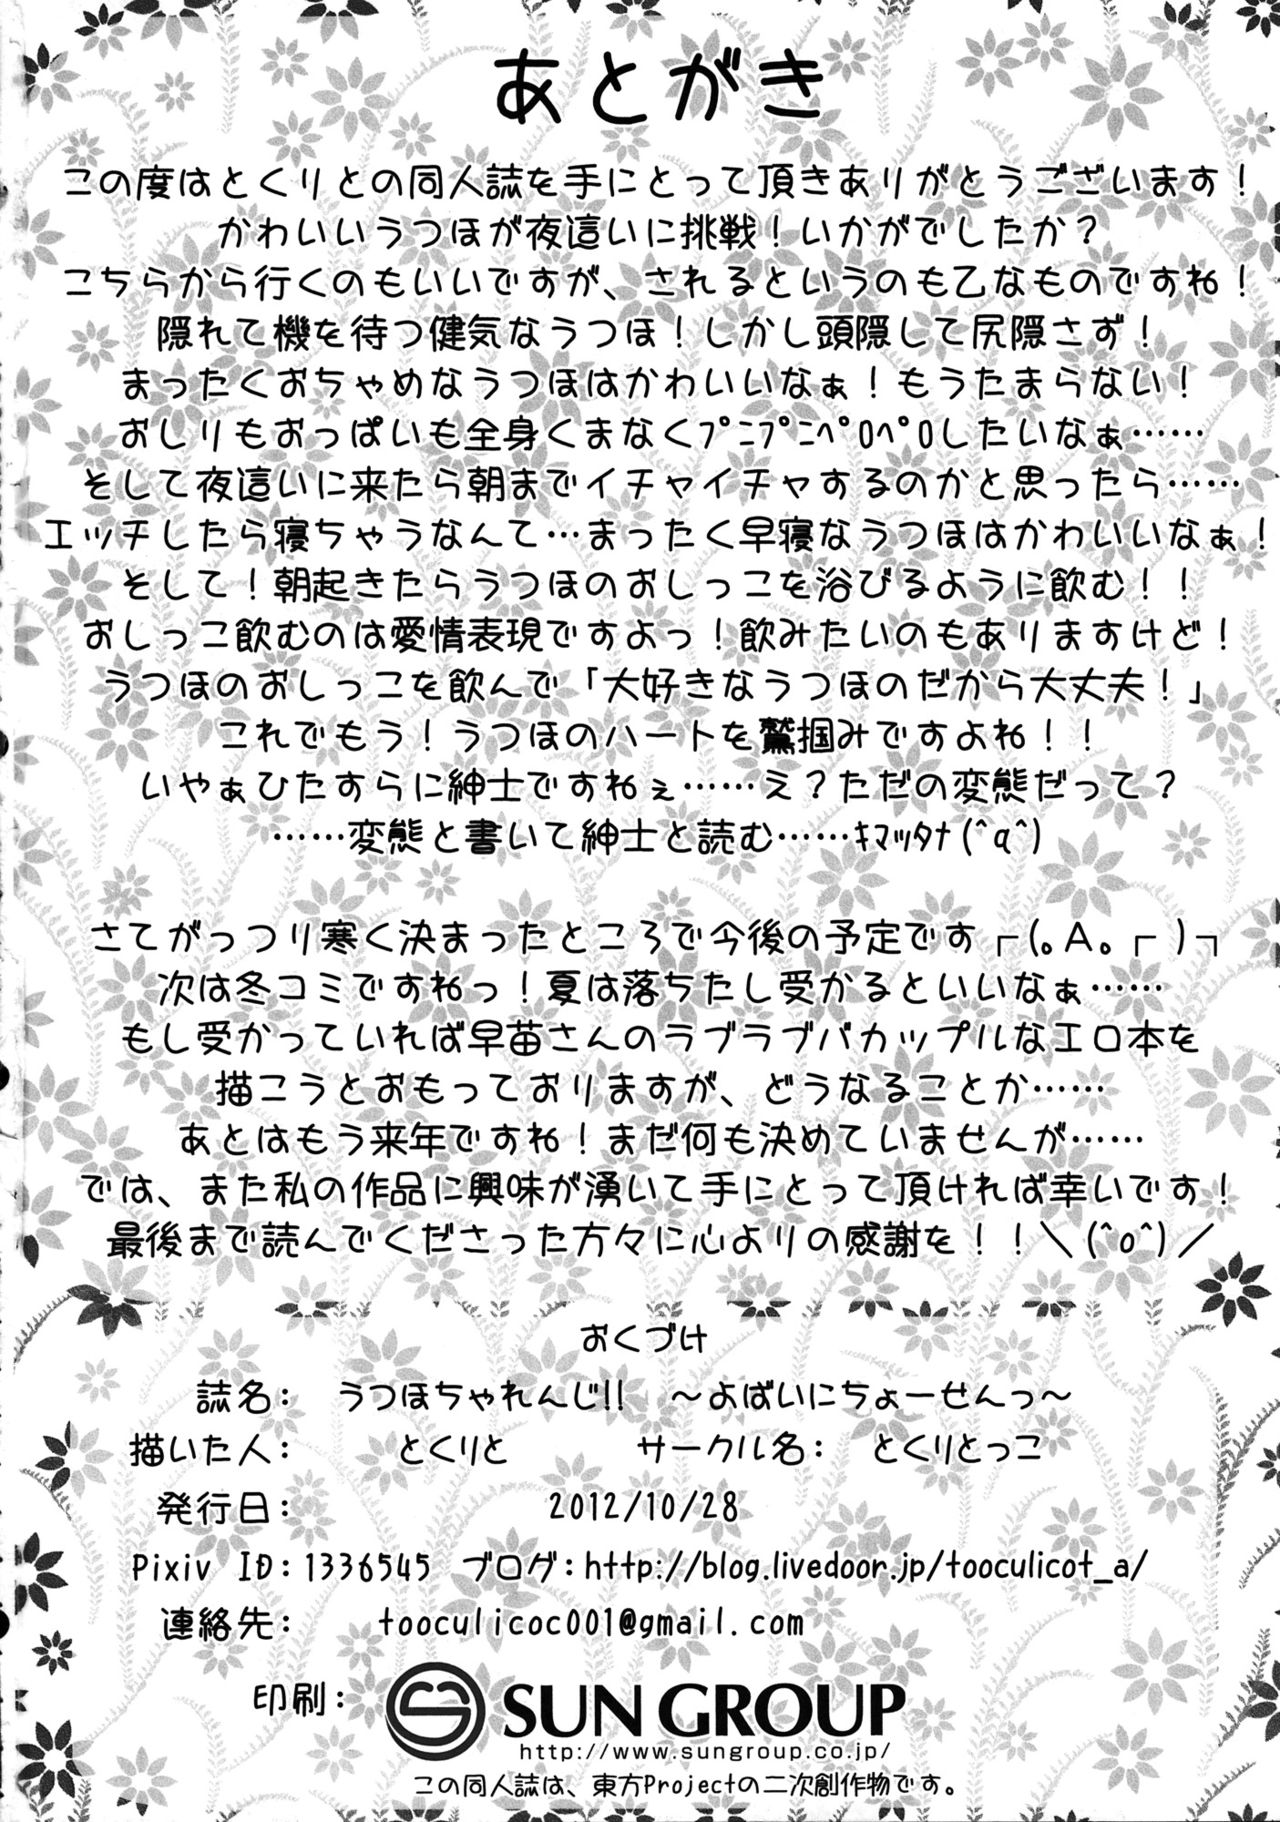 あとがき
この度はとくりとの同人誌を手にとって頂きありがとうございます！
かわいいうつほが夜這いに挑戦！いかがでしたか？
こちらから行くのもいいですが、されるというのも乙なものですね！
隠れて機を待つ健気なうつほ！しかし頭隠して尻隠さず！
まったくおちゃめなうつほはかわいいなぁ！もうたまらない！
おしりもおっぱいも全身くまなくﾌﾟﾆﾌﾟﾆﾍﾟﾛﾍﾟﾛしたいなぁ……
そして夜這いに来たら朝までイチャイチャするのかと思ったら……
エッチしたら寝ちゃうなんて…まったく早寝なうつほはかわいいなぁ！
そして！朝起きたらうつほのおしっこを浴びるように飲む！！
おしっこ飲むのは愛情表現ですよっ！飲みたいのもありますけど！
うつほのおしっこを飲んで「大好きなうつほのだから大丈夫！」
これでもう！うつほのハートを鷲掴みですよね！！
いやぁひたすらに紳士ですねぇ……え？ただの変態だって？
……変態と書いて紳士と読む……ｷﾏｯﾀﾅ(^q^)
さてがっつり寒く決まったところで今後の予定です┌(｡A｡┌ )┐
次は冬コミですねっ！夏は落ちたし受かるといいなぁ……
もし受かっていれば早苗さんのラブラブバカップルなエロ本を
描こうとおもっておりますが、どうなることか……
あとはもう来年ですね！まだ何も決めていませんが……
では、また私の作品に興味が湧いて手にとって頂ければ幸いです！
最後まで読んでくださった方々に心よりの感謝を！！＼(^o^)／
おくづけ
誌名：　うつほちゃれんじ!!　～よばいにちょーせんっ～
描いた人：　とくりと　サークル名：　とくりとっこ
発行日：　2012/10/28
Pixiv ID：1336545　ブログ：http://blog.livedoor.jp/tooculicot_a/
連絡先：　tooculicoc001@gmail.com
印刷：　SUN GROUP
http://www.sungroup.co.jp/
この同人誌は、東方Projectの二次創作物です。